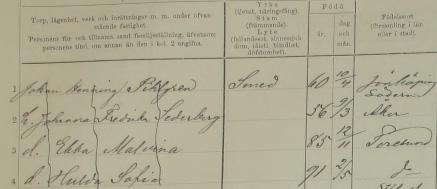 Torp, lägenhet, verk och inrättningar m. m. under ofvanstående fastighet.
Personens för- och tillnamn samt familjeställning, äfvensom personens titel, om annan än den i kol. 2 angifna.
Yrke
(tjenst, näringsfång).
Stam
(främmande).
Lyte
(fallandesot, sinnessjukdom, idioti, blindhet, döfstumhet).
Född
år.
dag och mån.
Födelseort
(församling i län eller i stad).
1 Johan Henning Sjögren Smed 60 10/4 Jönköping
Södern
2 h. Johanna Fredrika Sederberg 56 9/3 Åker
3 d. Ebba Malvina 85 12/11 Toresund
4 d. Hulda Sofia 91 2/5 d:o